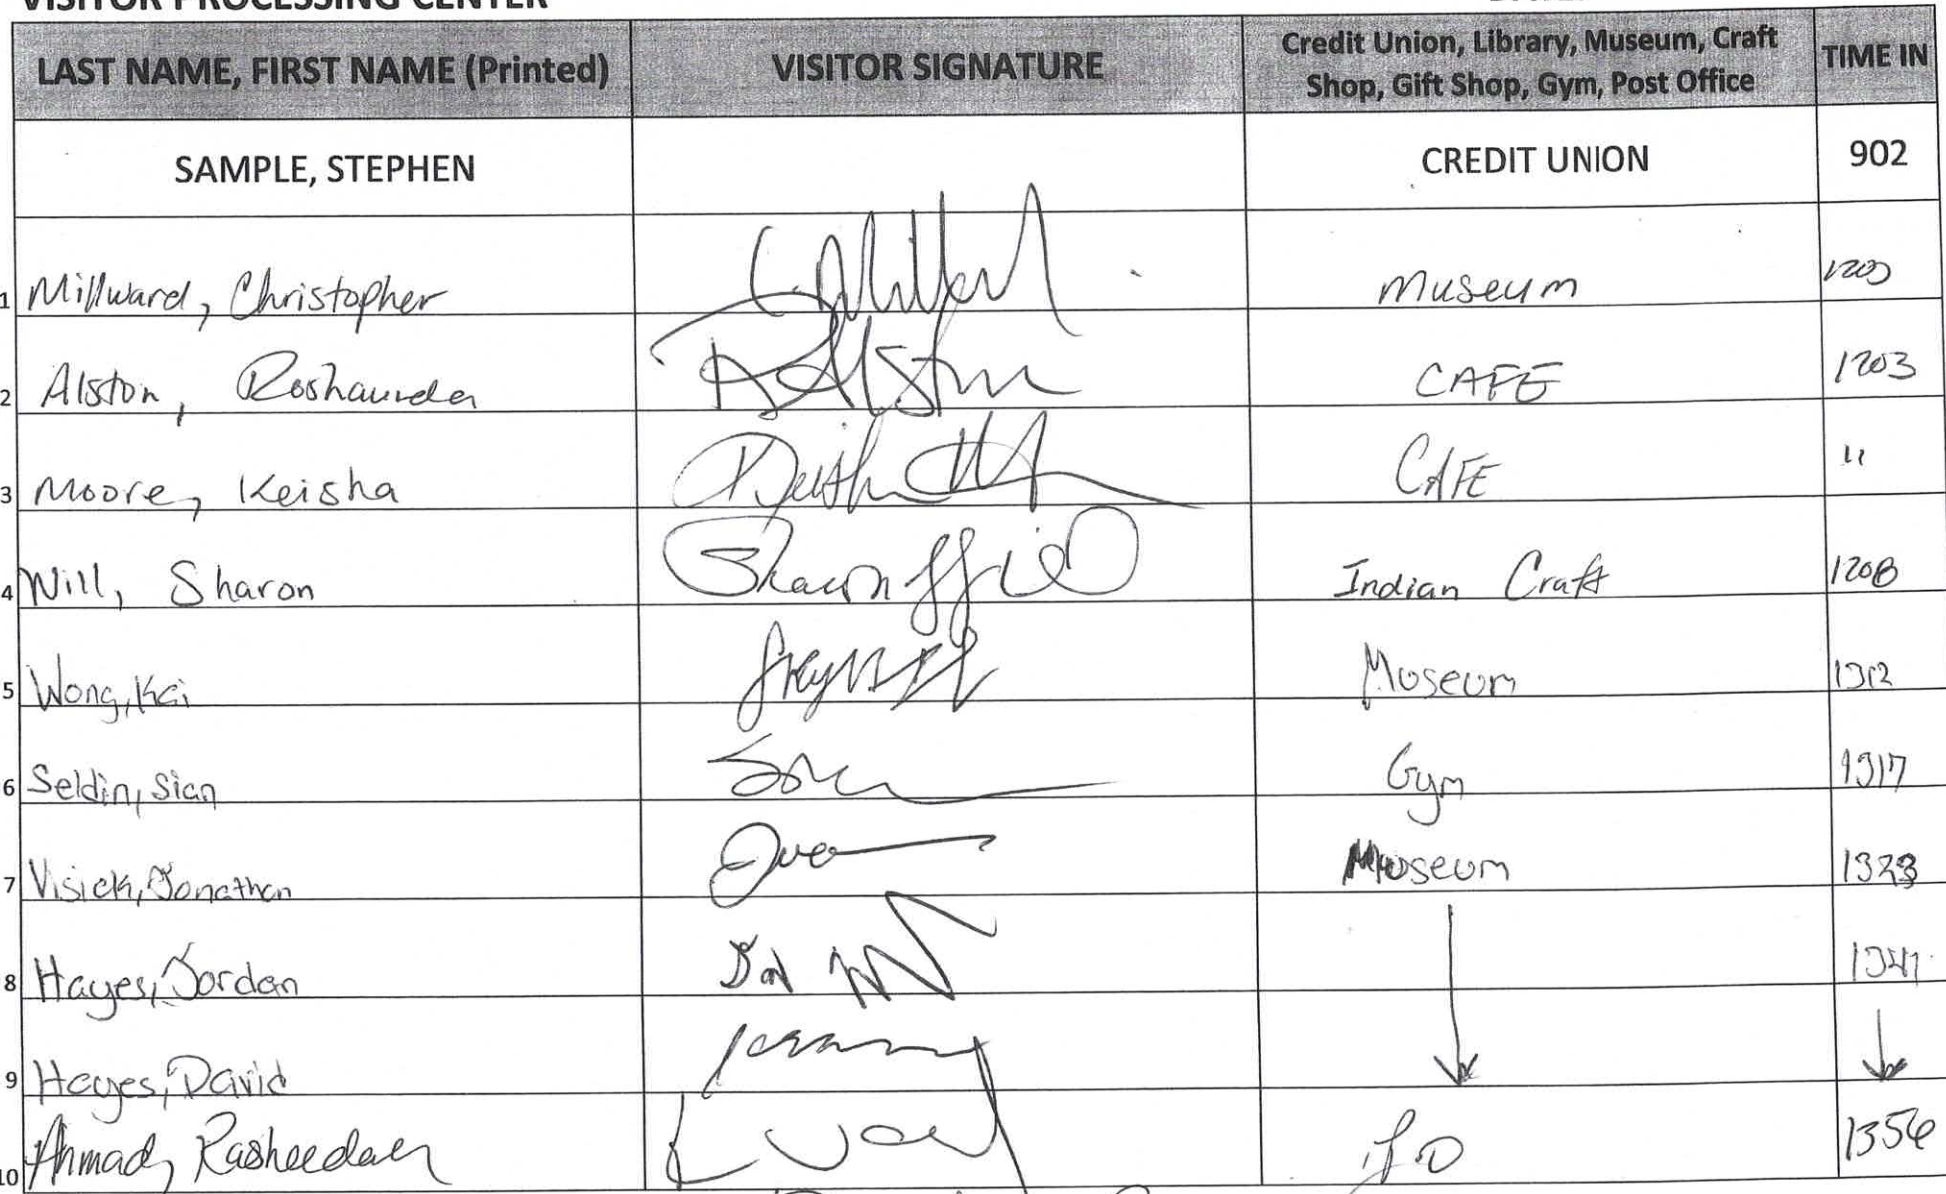 VISITOR PROCESSING CENTER
LAST NAME, FIRST NAME (Printed) VISITOR SIGNATURE Credit Union, Library, Museum, Craft Shop, Gift Shop, Gym, Post Office TIME IN
SAMPLE, STEPHEN CREDIT UNION 902
1 Millward, Christopher Museum
2 Alston, Roshaunda CAFE 1203
3 Moore, Keisha CAFE "
4 Will, Sharon Indian Craft 1208
5 Wong, Kai Museum 1312
6 Seldin, Sian Gym 1317
7 Visick, Jonathan Museum 1323
8 Hayes, Jordan 1341
9 Hayes, David
10 Ahmad, Rasheedah 1356